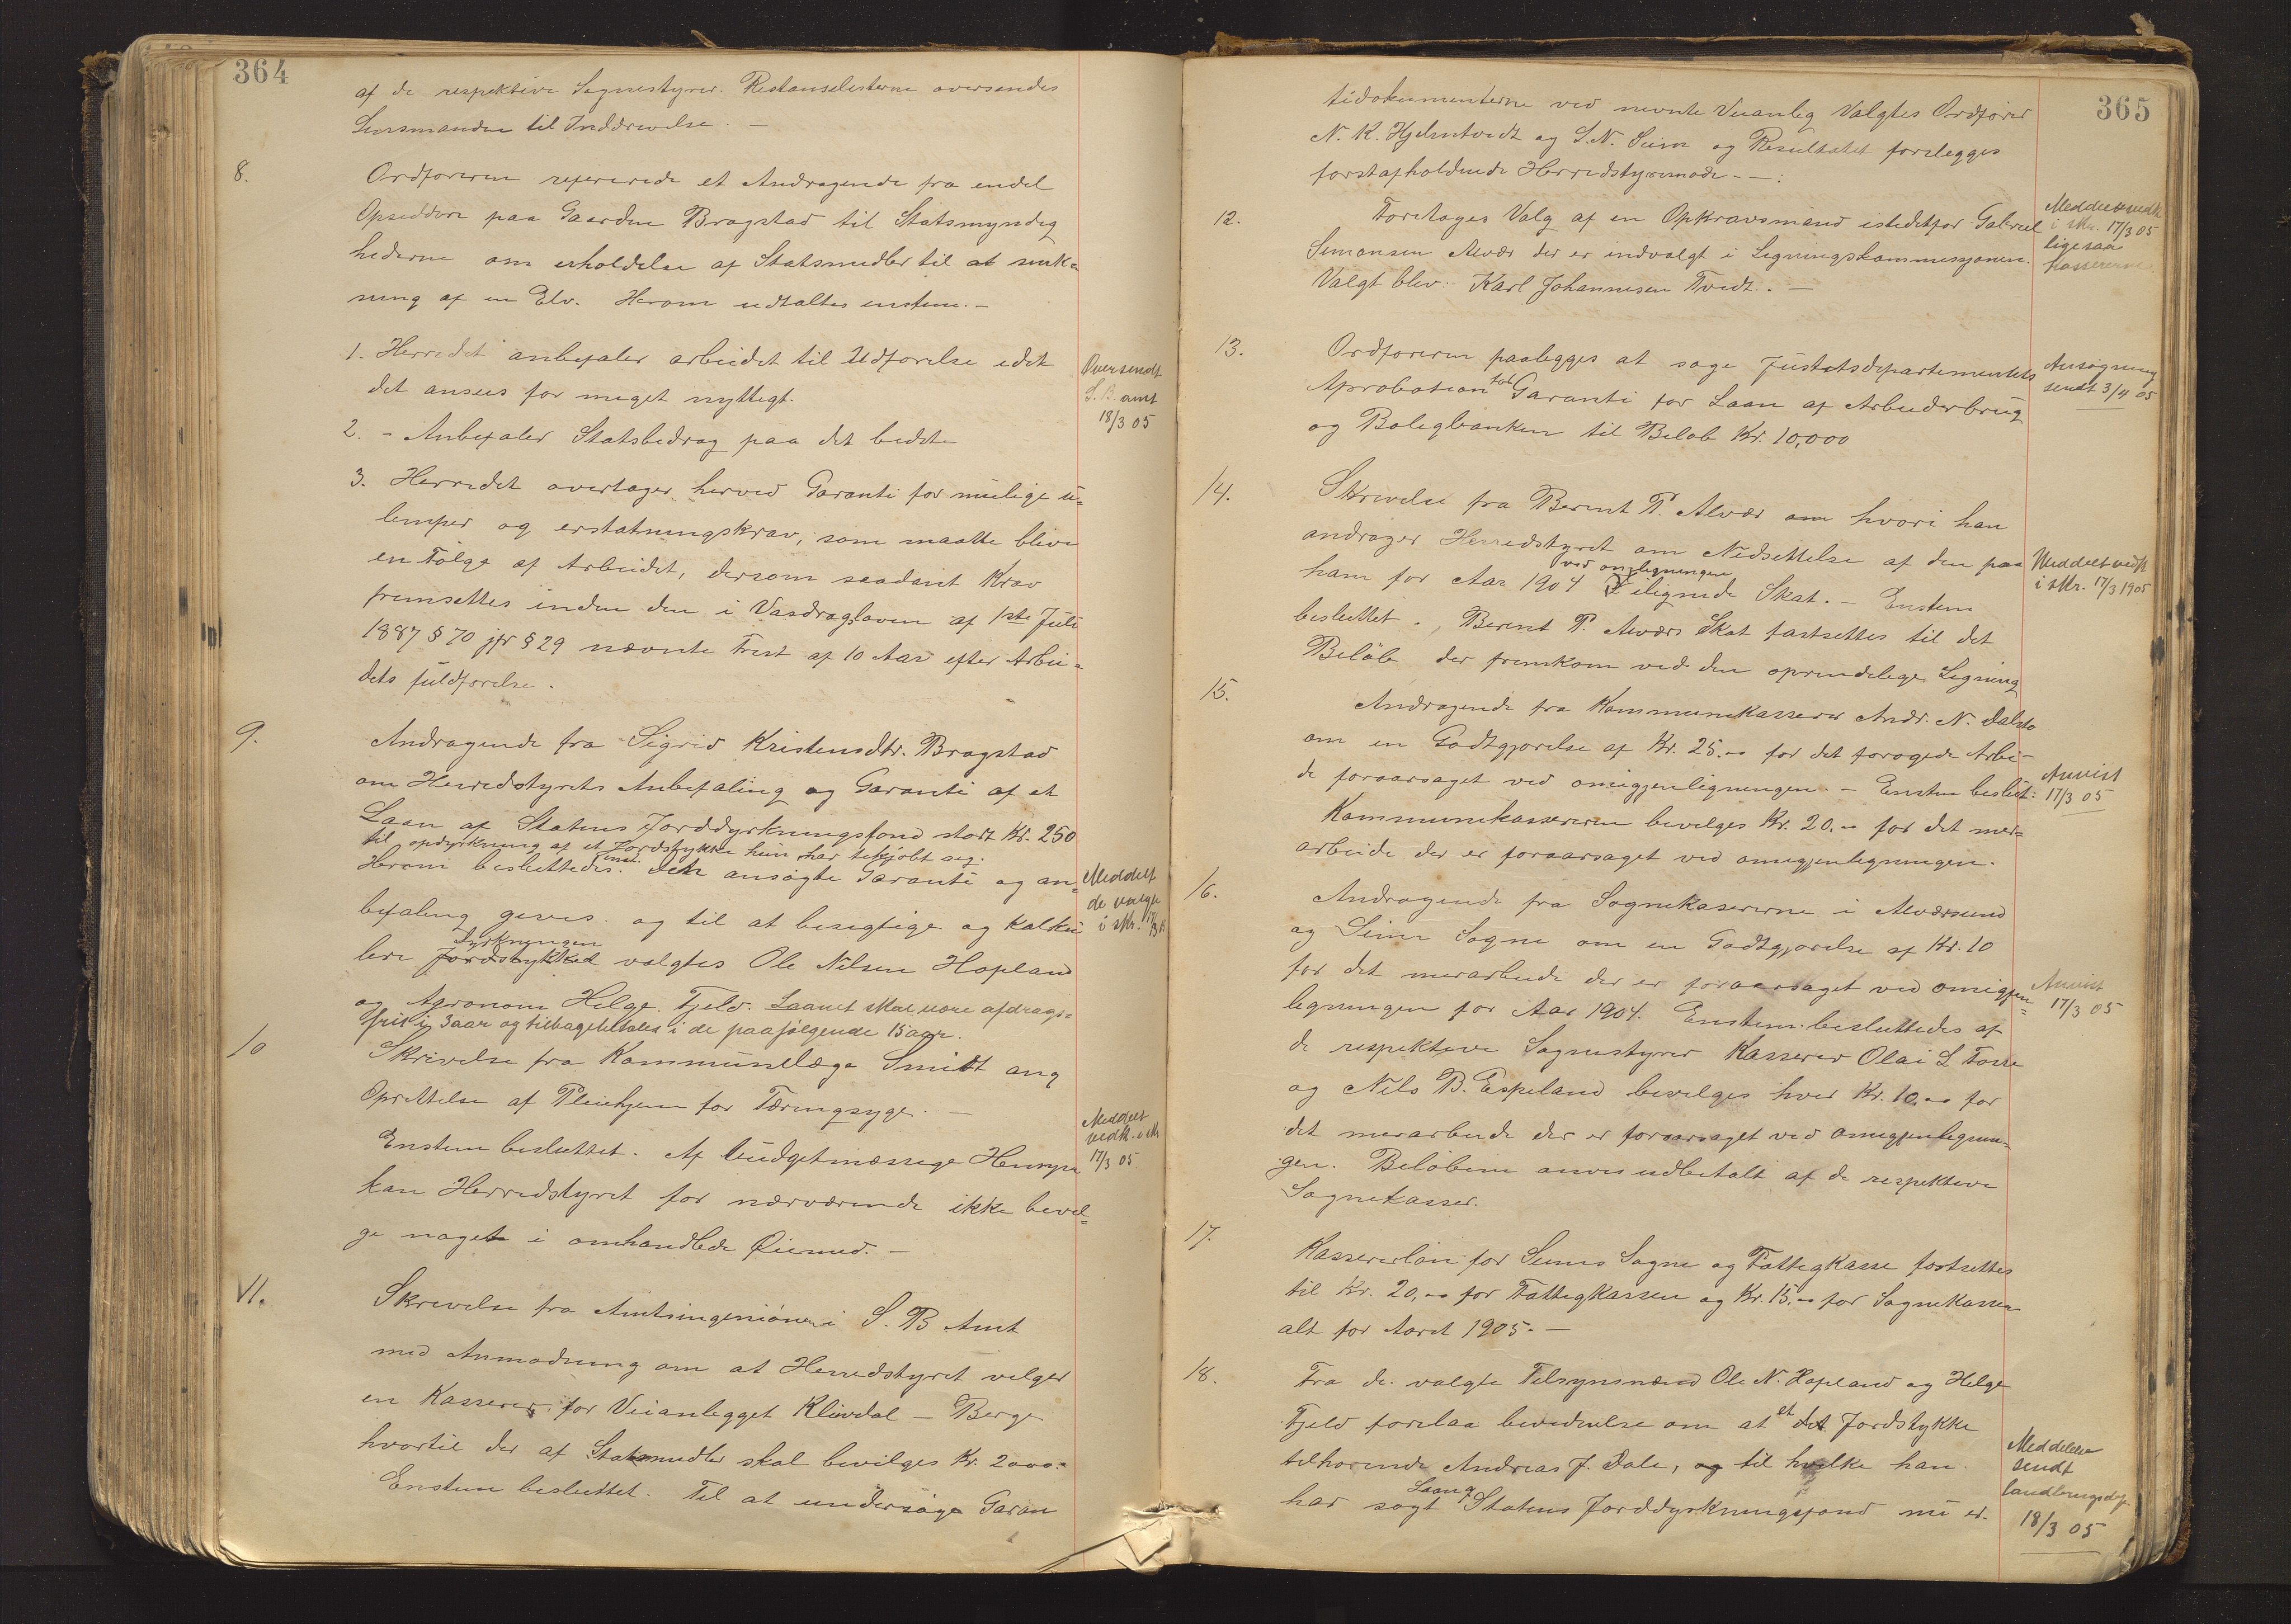 364
af de respektive Sognestyrer. Restanselisterne oversendes
Lensmanden til Inddrivelse. —
8. Ordføreren refererede et Andragende fra endel
Opsiddere paa Gaarden Bragstad til Statsmyndig
hederne om erholdelse af Statsmidler til at senk=
ning af en Elv. Herom udtaltes enstem. —
1. Herredet anbefaler arbeidet til Udførelse idet
det ansees for meget nyttigt.
2. - Anbefaler Statsbedrag paa det bedste
3. Herredet overtager herved Garanti for mulige u=
lemper og erstatningskrav, som maatte blive
en Følge af Arbeidet, dersom saadant Krav
fremsettes inden den i Vasdragsloven af 1ste Juli
1887 § 70 jfr § 29 nævnte Frist af 10 Aar efter Arbei=
dets fuldførelse.
Oversendt
S. B. amt
18/3 05
9. Andragende fra Sigrid Kristensdtr. Bragstad
om Herredstyrets Anbefaling og Garanti af et
Laan af Statens Jorddyrkningsfond stort Kr. 250
til opdyrkning af et Jordstykke hun har tilkjøbt seg.
Herom besluttedes: enst. Den ansøgte Garanti og an=
befaling gives. og til at besigtige og kalku
lere Jordstykket Dyrkningen valgtes Ole Nilsen Hopland
og Agronom Helge Fjeld. Laanet skal være afdrags=
frit i 3 aar og tilbagebetales i de paafølgende 15 aar.
Meddelt
de valgte
i skr. 17/3
10 Skrivelse fra Kommunelæge Smidt ang
Oprettelse af Pleiehjem for Tæringsyge. —
Enstem besluttet. Af budgetmæssige Hensyn
kan Herredstyret for nærværende ikke bevil=
ge noget i omhandlede Øiemed. —
Meddelt
vedk. i skr
17/3 05
11. Skrivelse fra Amtsingeniøren i S. B Amt
med Anmodning om at Herredstyret velger
en Kasserer for Veianlegget Kleivdal — Berge
hvortil der af Statsmidler skal bevilges Kr. 2000.=
Enstem besluttet. Til at undersøge Garan
365
tidokumenterne ved nevnte Veianleg Valgtes Ordfører
N. K. Hjelmtvedt og S. N. Seim og Resultatet forelegges
førstafholdende Herredstyremøde. — :
12. Foretages Valg af en Opkravsmand istedetfor Gabriel
Simonsen Alvær der er indvalgt i Ligningskommissjonen.
Valgt blev: Karl Johannesen Tvedt. . —
Meddelt vedk
i skr. 17/3 05
ligesaa
kassererne
13. Ordføreren paalegges at søge Justitsdepartementets
Aprobation for Garanti for Laan af Arbeiderbrug
og Boligbanken til Beløb Kr. 10,000
Ansøgning
sendt 3/4 05
14. Skrivelse fra Berent P. Alvær om hvori han
andrager Herredstyret om Nedsettelse af den paa
ham for Aar 1904 ved omligningen ilignede Skat. — Enstem
besluttet. Berent P. Alværs Skat fastsettes til det
Beløb der fremkom ved den oprindelige Ligning
Meddelt vedk
i skr. 17/3 1905
15. Andragende fra Kommunekasserer Andr. N. Dalsto
om en Godtgjørelse af Kr. 25.00 for det forøgede Arbei-
de foraarsaget ved omigjenligningen. — Enstem beslut:
Kommunekassereren bevilges Kr. 20.00 for det mer=
arbeide der er foraarsaget ved omigjenligningen.
Anvist
17/3 05
16. Andragende fra Sognekasererne i Alværsund
og Seim Sogne om en Godtgjørelse af Kr. 10
for det merarbeide der er foraarsaget ved omigjen=
ligningen for Aar 1904. Enstem. besluttedes af
de respektive Sognestyrer Kasserer Olai L Fosse
og Nils B. Espeland bevilges hver Kr. 10.00 for
det merarbeide der er foraarsaget ved omigjenlignin=
gen. Beløbene anvis udbetalt af de respektive
Sognekasser.
Anvist
17/3 05
17. Kassererløn for Seims Sogne og Fattigkasse fastsettes
til Kr. 20,00 for Fattigkassen og Kr. 15,00 for Sognekassen
alt for Aaret 1905. —
18. Fra de valgte Tilsynsmænd Ole N. Hopland og Helge
Fjeld forelaa bevidnelse om at et det Jordstykke
tilhørende Andreas J. Dale, og til hvilke han
har søgt Laan af Statens Jorddyrkningsfond nu er
Meddelelse
sendt
landbrugsdep
18/3 05